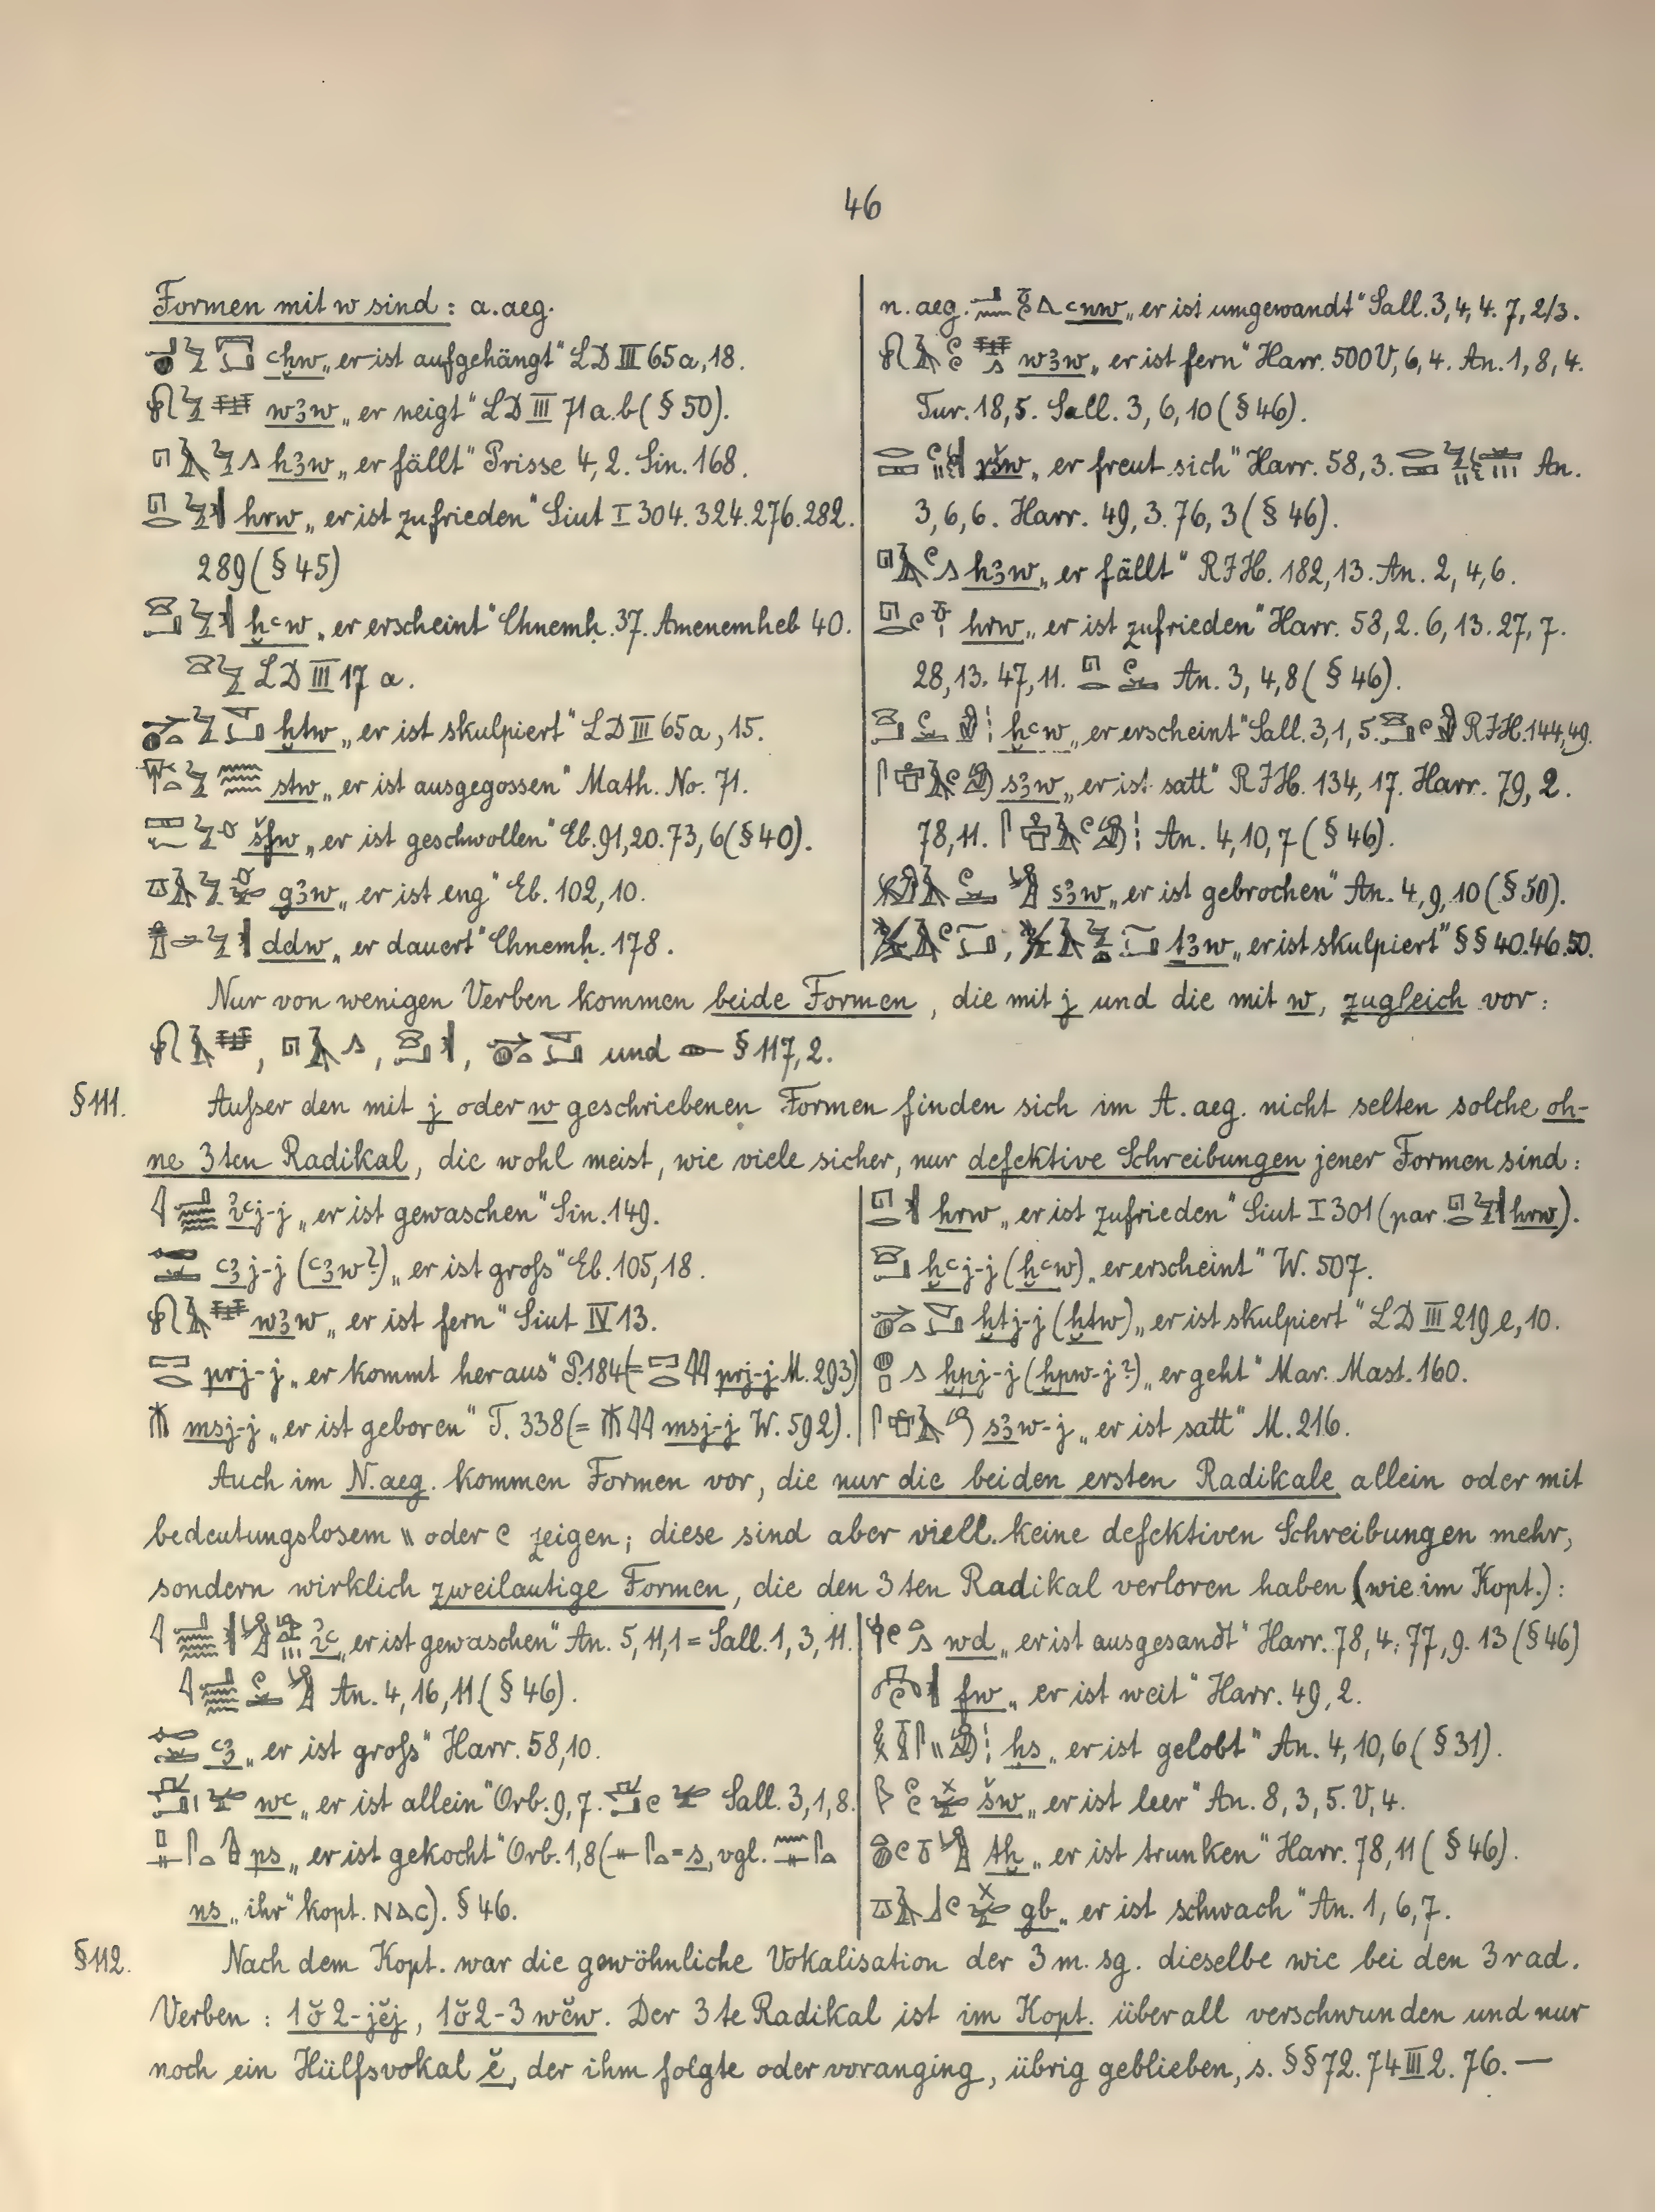 46
Formen mit w sind: a.aeg.
ꜥḫw „er ist aufgehängt“ LD III 65a, 18.
wꜣw „er neigt“ LD III 71a.b (§ 50).
hꜣw „er fällt“ Prisse 4, 2. Sin. 168.
hrw „er ist zufrieden“ Siut I 304. 324. 276. 282.
289 (§ 45)
ḫꜥw „er erscheint“ Chnemḥ. 37. Amenemheb 40.
LD III 17 a.
ḫtw „er ist skulpiert“ LD III 65a, 15.
stw „er ist ausgegossen“ Math. No. 71.
šfw „er ist geschwollen“ Eb. 91, 20. 73, 6 (§ 40).
gꜣw „er ist eng“ Eb. 102, 10.
ddw „er dauert“ Chnemḥ. 178.
n. aeg. ꜥnw „er ist umgewandt“ Sall. 3, 4, 4. 7, 2/3.
wꜣw „er ist fern“ Harr. 500 V, 6, 4. An. 1, 8, 4.
Tur. 18, 5. Sall. 3, 6, 10 (§ 46).
ršw „er freut sich“ Harr. 58, 3. An.
3, 6, 6. Harr. 49, 3. 76, 3 (§ 46).
hꜣw „er fällt“ RIH. 182, 13. An. 2, 4, 6.
hrw „er ist zufrieden“ Harr. 58, 2. 6, 13. 27, 7.
28, 13. 47, 11. An. 3, 4, 8 (§ 46).
ḫꜥw „er erscheint“ Sall. 3, 1, 5. RIH. 144, 49.
sꜣw „er ist satt“ RIH. 134, 17. Harr. 79, 2.
78, 11. An. 4, 10, 7 (§ 46).
sꜣw „er ist gebrochen“ An. 4, 9, 10 (§ 50).
, ṯꜣw „er ist skulpiert“ §§ 40. 46. 50.
Nur von wenigen Verben kommen beide Formen, die mit j und die mit w, zugleich vor:
, , , und § 117, 2.
§ 111. Außer den mit j oder w geschriebenen Formen finden sich im A. aeg. nicht selten solche oh-
ne 3ten Radikal, die wohl meist, wie viele sicher, nur defektive Schreibungen jener Formen sind:
ı͗ꜥj-j „er ist gewaschen“ Sin. 149.
ꜥꜣj-j (ꜥꜣw?) „er ist groß“ Eb. 105, 18.
wꜣw „er ist fern“ Siut IV 13.
prj-j „er kommt heraus“ P. 184 (= prj-j M. 293)
msj-j „er ist geboren“ T. 338 (= msj-j W. 592).
hrw „er ist zufrieden“ Siut I 301 (par. hrw).
ḫꜥj-j (ḫꜥw) „er erscheint“ W. 507.
ḫtj-j (ḫtw) „er ist skulpiert“ LD III 219 e, 10.
ḫpj-j (ḫpw-j?) „er geht“ Mar. Mast. 160.
sꜣw-j „er ist satt“ M. 216.
Auch im N. aeg. kommen Formen vor, die nur die beiden ersten Radikale allein oder mit
bedeutungslosem \\ oder zeigen; diese sind aber viell. keine defektiven Schreibungen mehr,
sondern wirklich zweilautige Formen, die den 3ten Radikal verloren haben (wie im Kopt.):
ı͗ꜥ „er ist gewaschen“ An. 5, 11, 1 = Sall. 1, 3, 11.
An. 4, 16, 11 (§ 46).
ꜥꜣ „er ist groß“ Harr. 58, 10.
wꜥ „er ist allein“ Orb. 9, 7. Sall. 3, 1, 8.
ps „er ist gekocht“ Orb. 1, 8 ( = s, vgl.
ns „ihr“ kopt. ⲛⲁⲥ). § 46.
wd „er ist ausgesandt“ Harr. 78, 4. 77, 9. 13 (§ 46)
fw „er ist weit“ Harr. 49, 2.
ḥs „er ist gelobt“ An. 4, 10, 6 (§ 31).
šw „er ist leer“ An. 8, 3, 5. V, 4.
tḫ „er ist trunken“ Harr. 78, 11 (§ 46).
gb „er ist schwach“ An. 1, 6, 7.
§ 112. Nach dem Kopt. war die gewöhnliche Vokalisation der 3 m. sg. dieselbe wie bei den 3 rad.
Verben: 1ŏ2-jĕj, 1ŏ2-3wĕw. Der 3te Radikal ist im Kopt. überall verschwunden und nur
noch ein Hülfsvokal ĕ, der ihm folgte oder voranging, übrig geblieben, s. §§ 72. 74 III 2. 76. —